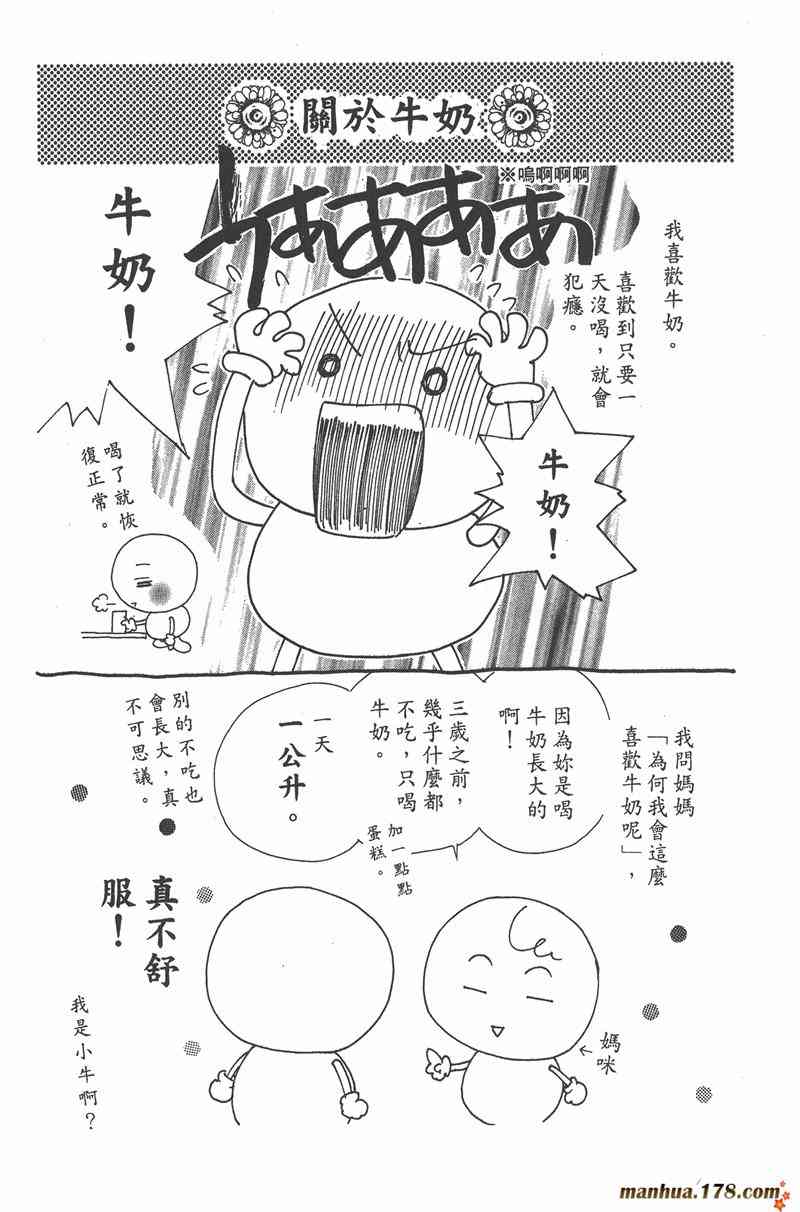 關於牛奶
※嗚啊啊啊
うああああ
我喜歡牛奶。
喜歡到只要一
天沒喝，就會
犯癮。
牛奶！
牛奶！
喝了就恢
復正常。
我問媽媽
「為何我會這麼
喜歡牛奶呢」，
因為妳是喝
牛奶長大的
啊！
三歲之前，
幾乎什麼都
不吃，只喝
牛奶。
加一點點
蛋糕。
一天
一公升。
別的不吃也
會長大，真
不可思議。
真不舒
服！
媽咪
我是小牛啊？
manhua.178.com